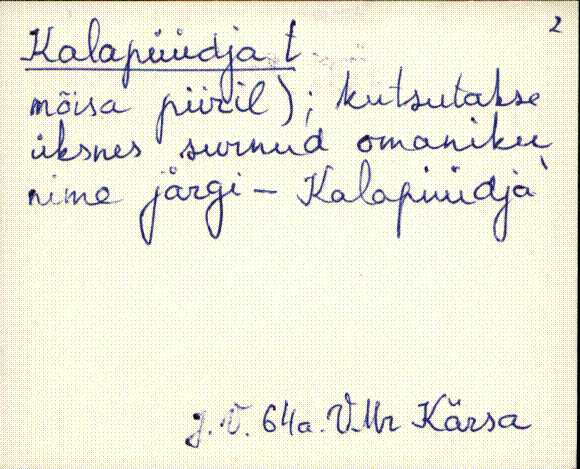 2
Kalapüüdja t
mõisa piiril); kutsutakse
üksnes surnud omaniku
nime järgi – Kalapüüdja
J. V. 64a. VMr Kärsa